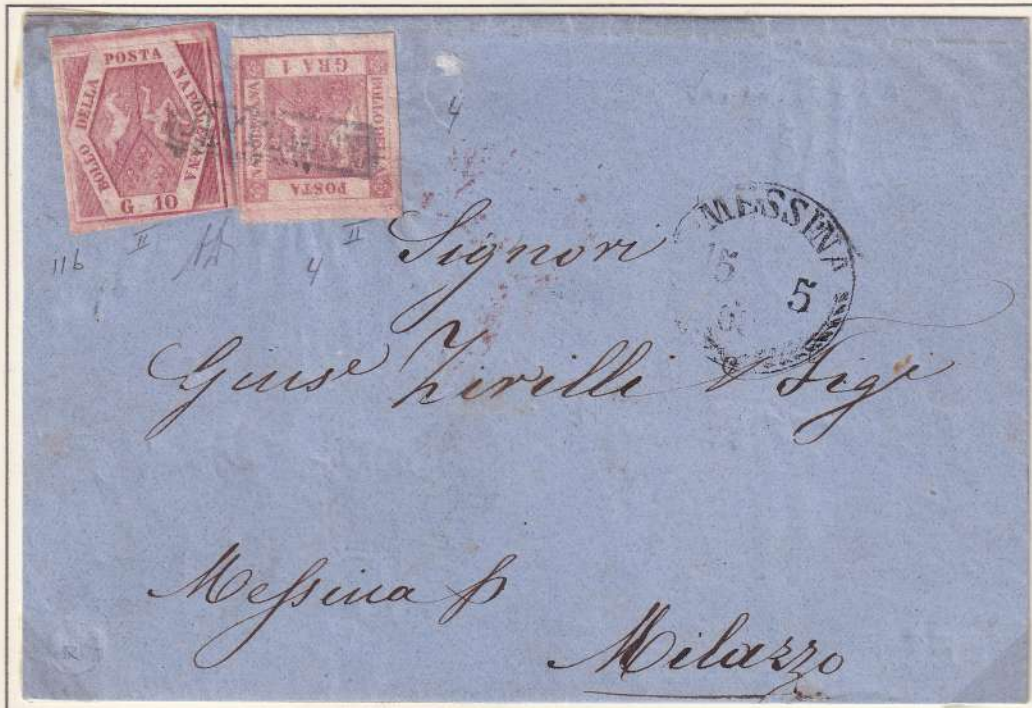 BOLLO DELLA POSTA NAPOLETANA
G. 10
GRA 1
POSTA
NAPOLETANA
4
II
II
11b
4
MESSINA
15
5
Signori
Giuse Zirilli & Figi
Messina p
Milazzo